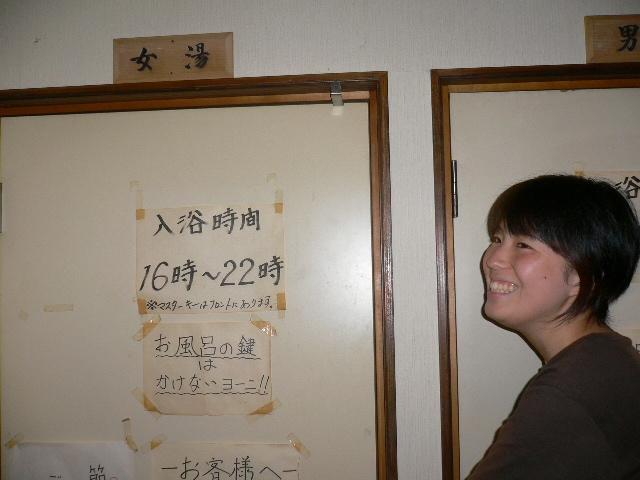 女湯
男
入浴時間
16時～22時
※マスターキーはフロントにあります。
お風呂の鍵
は
かけないヨーニ!!
ーお客様へー
浴